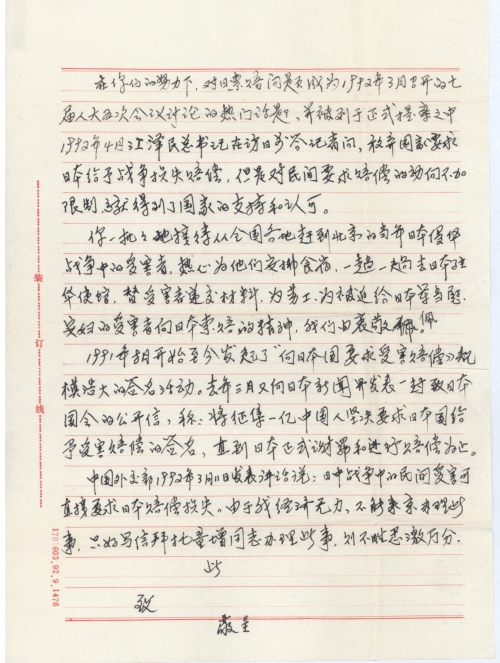 在你们的努力下,对日索赔问题成为1992年3月召开的七
届人大五次会议讨论的热门话题,并被列于正式提案之中
1992年4月江泽民总书记在访日前答记者问,放弃国家要求
日本给予战争损失赔偿,但是对民间要求赔偿的动向不加
限制,这就得到了国家的支持和认可。
你一批々地接待从全国各地赶到北京的当年日本侵华
战争中的受害者,热心为他们安排食宿,一趟一趟去日本驻
华使馆,替受害者递交材料,为劳工、为被迫给日本军当慰
安妇的受害者向日本索赔的精神,我们由衷敬佩。佩
1991年8月开始至今发起了“向日本国要求受害赔偿”规
模浩大的签名活动。去年三月又向日本新闻界发表一封致日本
国会的公开信,称:将征集一亿中国人坚决要求日本国给
予受害赔偿的签名,直到日本正式谢罪和进行赔偿为止。
中国外交部1992年3月11日发表评论说:日中战争中的民间受害可
直接要求日本赔偿损失。由于我经济无力,不能来京办理此
事,只好写信拜托童增同志办理此事,则不胜感激万分。
此
致
敬呈
装
订
线
170·603.92.9.1476